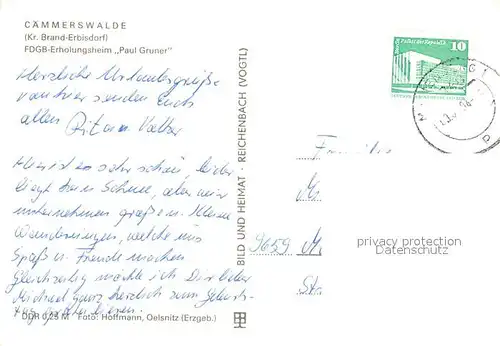 CÄMMERSWALDE
(Kr. Brand-Erbisdorf)
FDGB-Erholungsheim „Paul Gruner"
Herzliche Urlaubsgrüße
von hier senden Euch
allen Rita u. Volker
Hier ist es sehr schön, leider
liegt kein Schnee, aber wir
unternehmen große u. kleine
Wanderungen, welche uns
Spaß u. Freude machen
Gleichzeitig möchte ich Dir lieber
Michael ganz herzlich zum Geburts-
tag gratulieren.
DDR 0,25 M Foto: Hoffmann, Oelsnitz (Erzgeb.)
BILD UND HEIMAT · REICHENBACH (VOGTL)
Palast der Republik
10
Familie
M.
9659 M.
Str.
privacy protection
Datenschutz